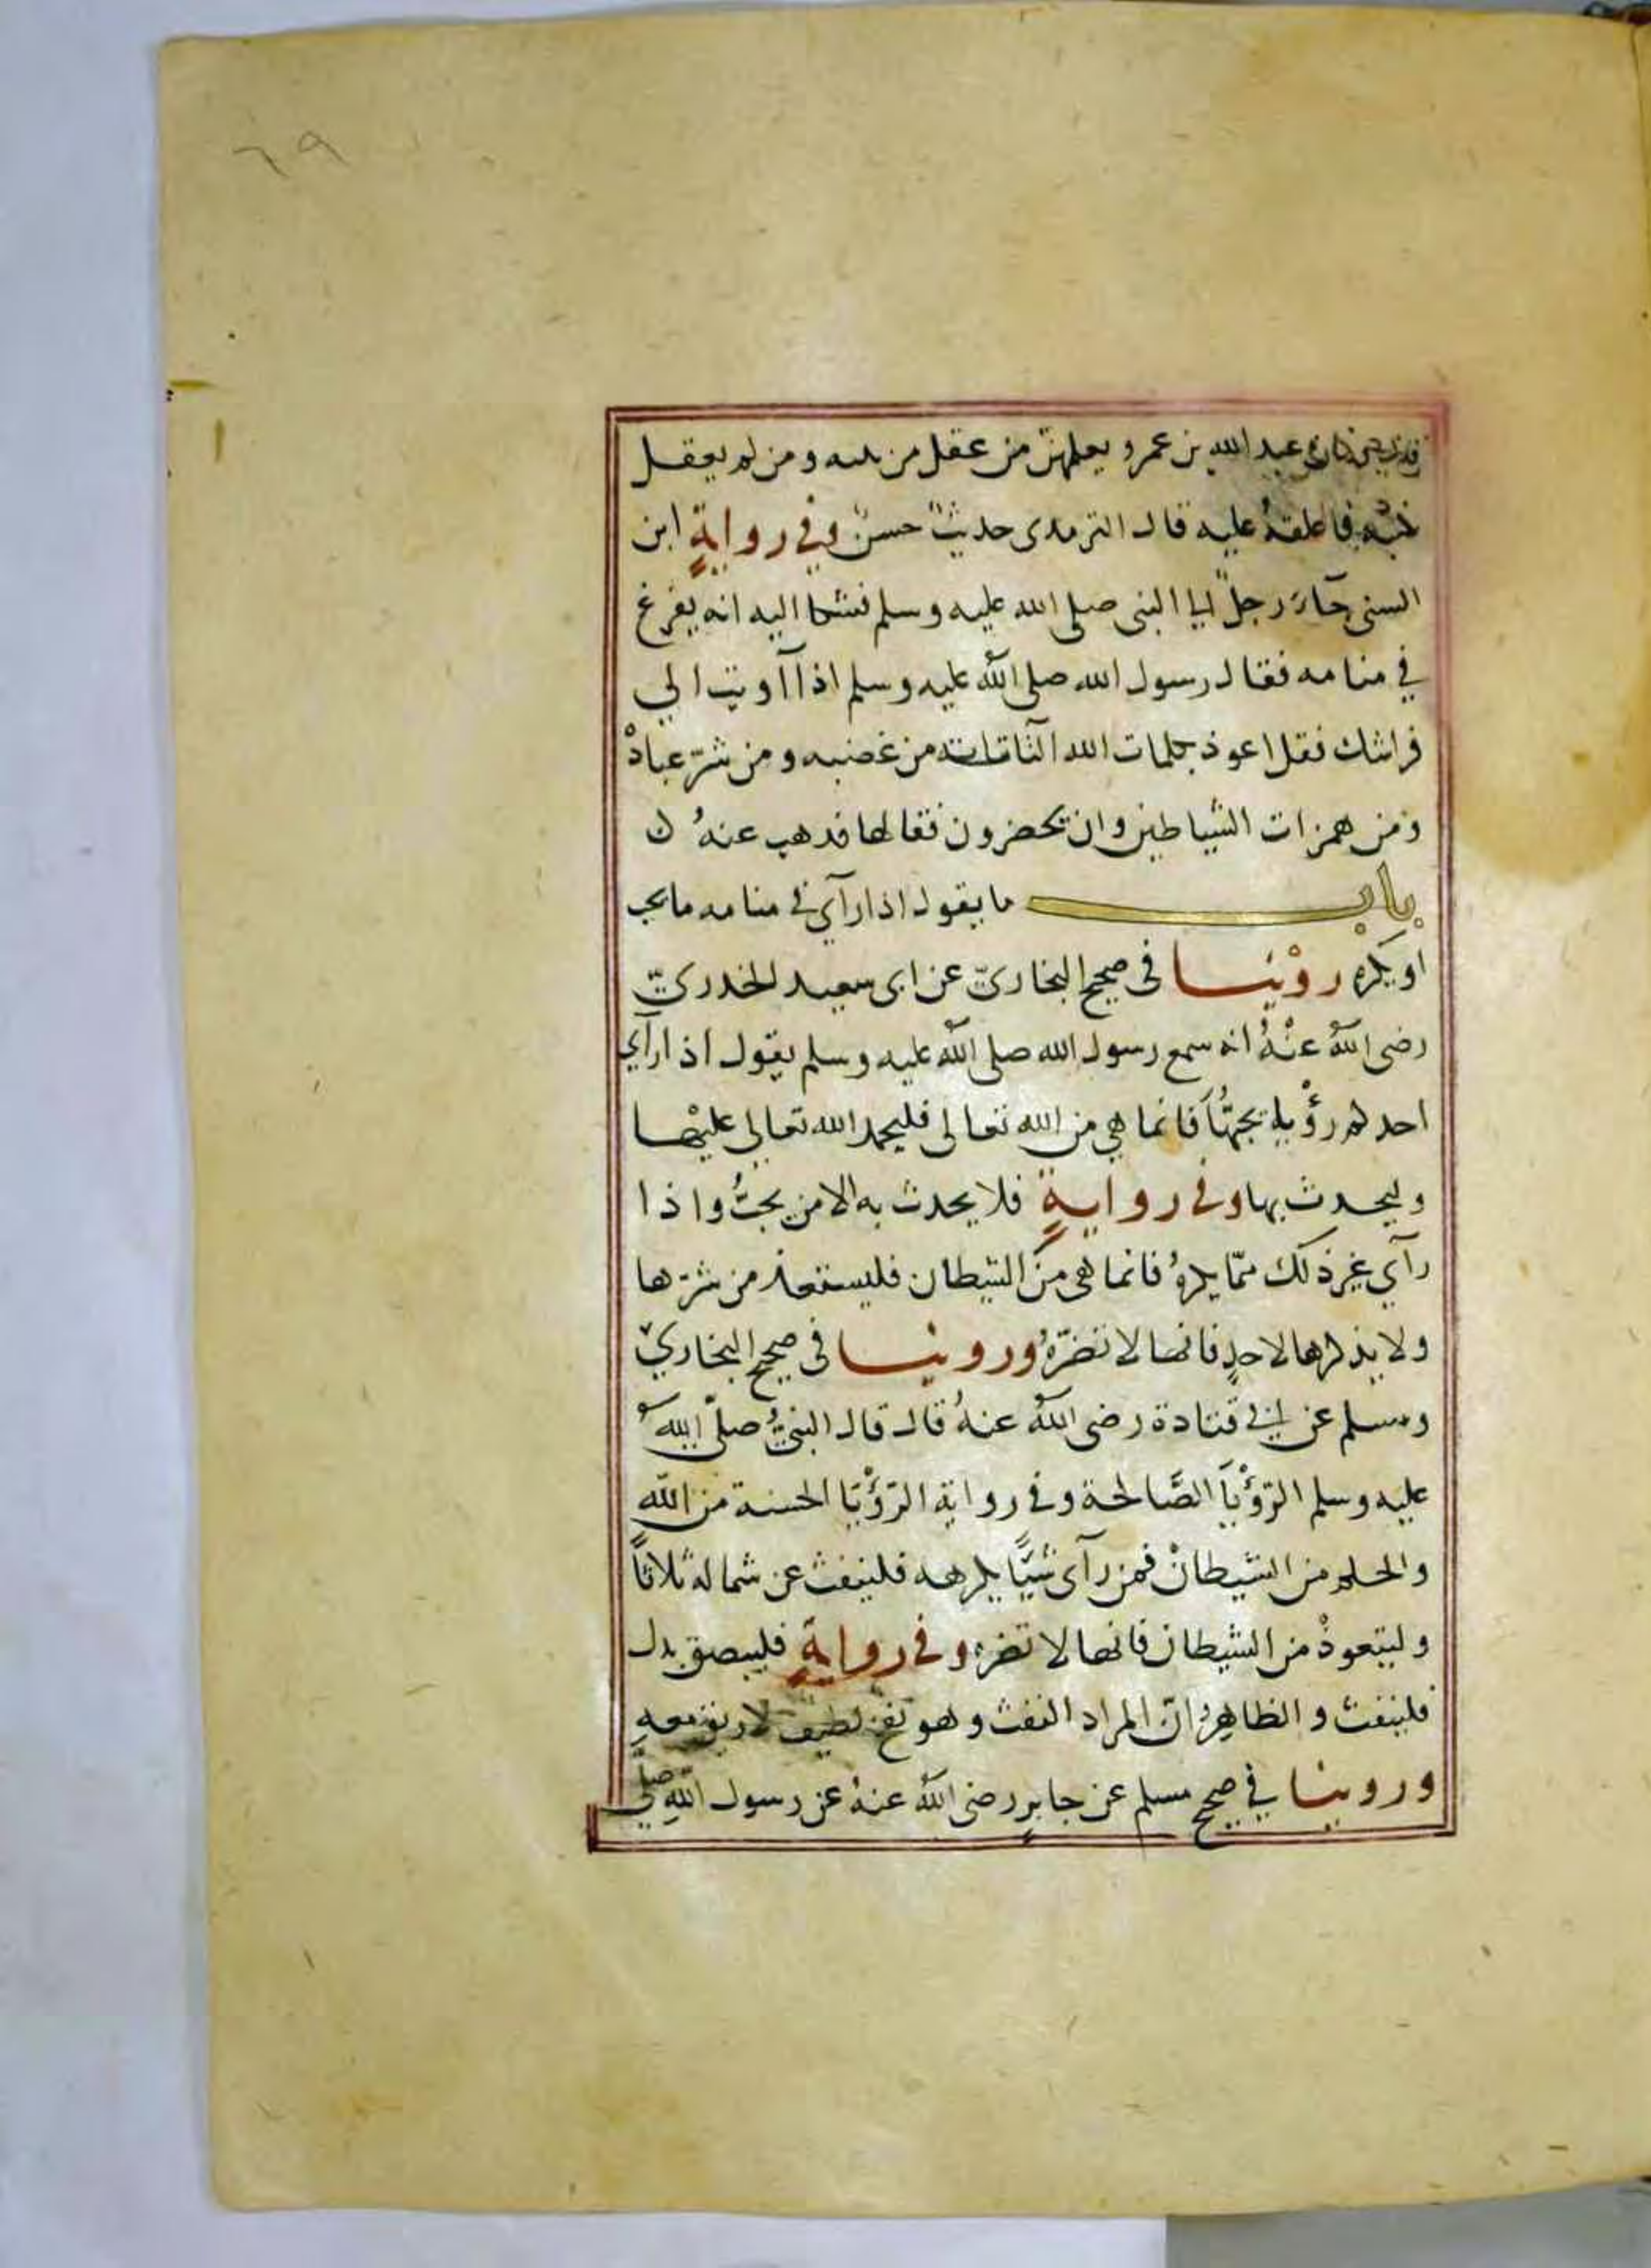 ٦٩
عبد الله بن عمرو يعلمهنّ من عقل من بنيه ومن لم يعقل
كتبه فاعلقهُ عليه قال الترمذى حديثٌ حسنٌ وفي روايةٍ ابن
السنى جآء رجلٌ الى النبى صلى الله عليه وسلم فشكا اليه انه يفزع
في منامه فقال رسول الله صلى اللهُ عليه وسلم اذا آويت الي
فراشك فقل اعوذ بكلمات الله التّامّات من غضبه ومن شرّ عباده
ومن همزات الشياطين وان يحضرون فقالها فذهب عنهُ
باب ما يقول اذا رآي في منامه ما يحب
او يكره روْينا فى صحيح البخاريّ عن ابى سعيد الخدريّ
رضى اللهُ عنْهُ انه سمع رسول الله صلى اللهُ عليه وسلم يقول اذا رآي
احدكم رؤْيا يحبّهَا فانما هي من الله تعالى فليحمد الله تعالى عليْها
وليحدث بها وفى روايةٍ فلا يحدث به الا من يحبُّ واذا
رآي غير ذلك ممّا يكرهُ فانما هى منَ الشيطان فليستعذ من شرّها
ولا يذكرها لاحدٍ فانها لا تضرّهُ وروينا فى صحيح البخاريّ
ومسلم عن ابي قتادة رضى اللهُ عنهُ قال قال النبيُّ صلّى اللهُ
عليه وسلم الرّؤْيَا الصَّالحة وفى رواية الرّؤْيَا الحسنة من الله
والحلم من الشيطان فمن رآى شيًّا يكرهه فلينفث عن شماله ثلاثاً
وليتعوذْ من الشيطان فانها لا تضره وفى روايةٍ فليبصق بدل
فلينفث والظاهرُ انّ المراد النفث وهو نفخ لطيف لا ريق معه
وروينا في صحيح مسلم عن جابرٍ رضى اللهُ عنهُ عن رسول اللهِ صلّي